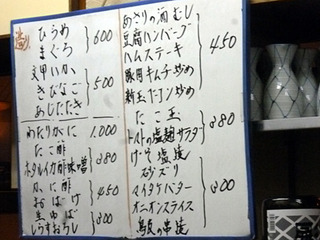 ひらめ
まぐろ
600
文甲いか
きびなご
あじたたき
500
わたりがに
1,000
たこ酢
ホタルイカ酢味噌
380
かに酢
おばけ
450
生ゆば
しらすおろし
300
あさりの酒むし
豆腐ハンバーグ
ハムステーキ
豚肉キムチ炒め
新玉
炒め
450
たこ玉
トマトの塩麹サラダ
げそ塩焼
380
砂ズリ
マイタケバター
オニオンスライス
鳥皮の串焼
300